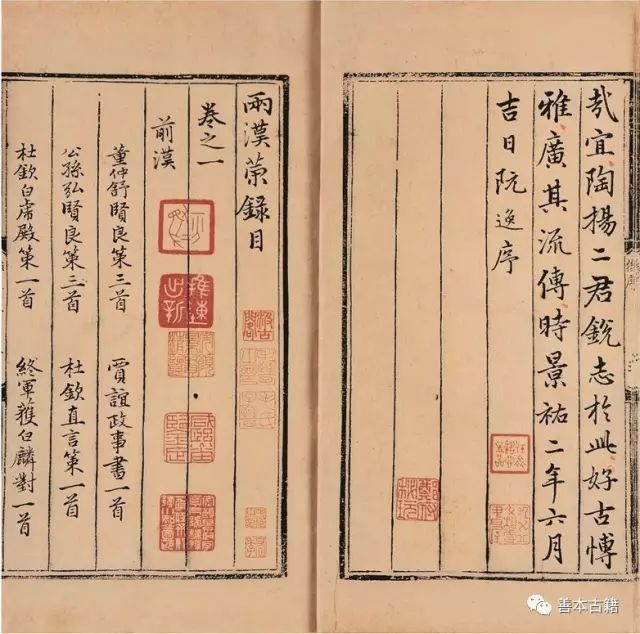 哉宜陶揚二君銳志於此好古博
雅廣其流傳時景祐二年六月
吉日阮逸序
兩漢策錄目
卷之一
前漢
董仲舒賢良策三首
賈誼政事書一首
公孫弘賢良策三首
杜欽直言策一首
杜欽白虎殿策一首
終軍獲白麟對一首
汲古閣
善本古籍